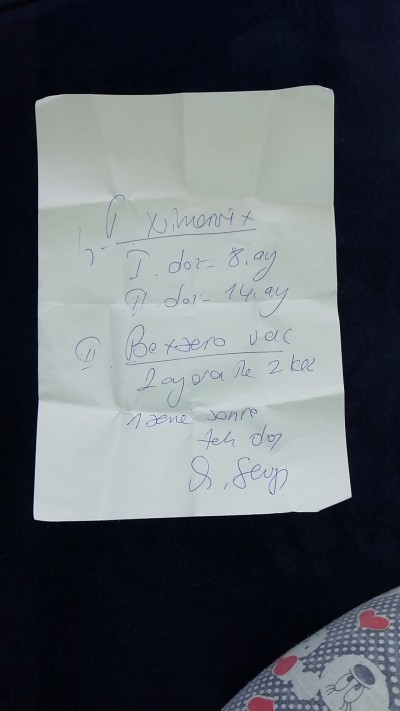 I Nimenrix
I. doz= 8. ay
II. doz= 14. ay
II. Bexsero vac
2 ay ara ile 2 kez
1 sene sonra
tek doz